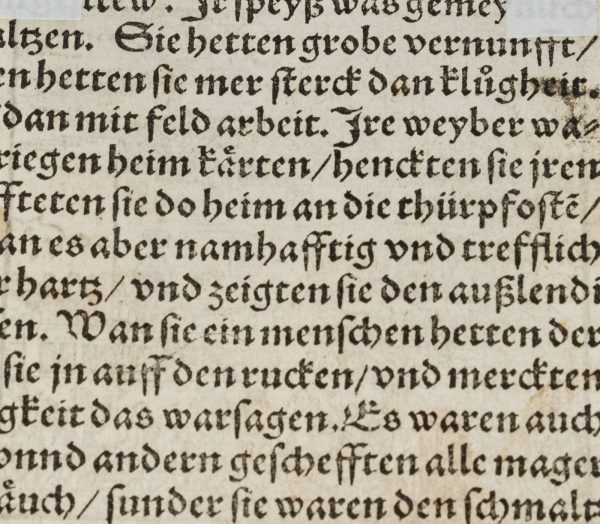 Jr speyß was gemey
altzen. Sie hetten grobe vernunfft/
en hetten sie mer sterck dan klůgheit.
dan mit feld arbeit. Jre weyber wa⸗
riegen heim kårten/henckten sie jren
ffteten sie do heim an die thürpfostẽ/
an es aber namhafftig vnd trefflich
r hartz/ vnd zeigten sie den außlendi
en. Wan sie ein menschen hetten der
sie jn auff den rucken/vnd merckten
gkeit das warsagen. Es waren auch
onnd andern geschefften alle mager
åuch/ sunder sie waren den schmaltz